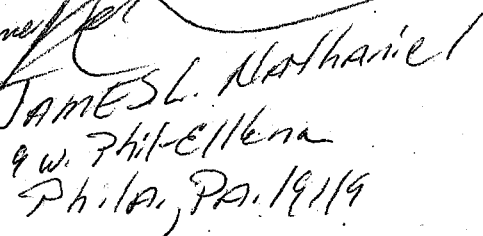 JAMES L. Nathaniel
9 W. Phil-Ellena
Phila., PA. 19119